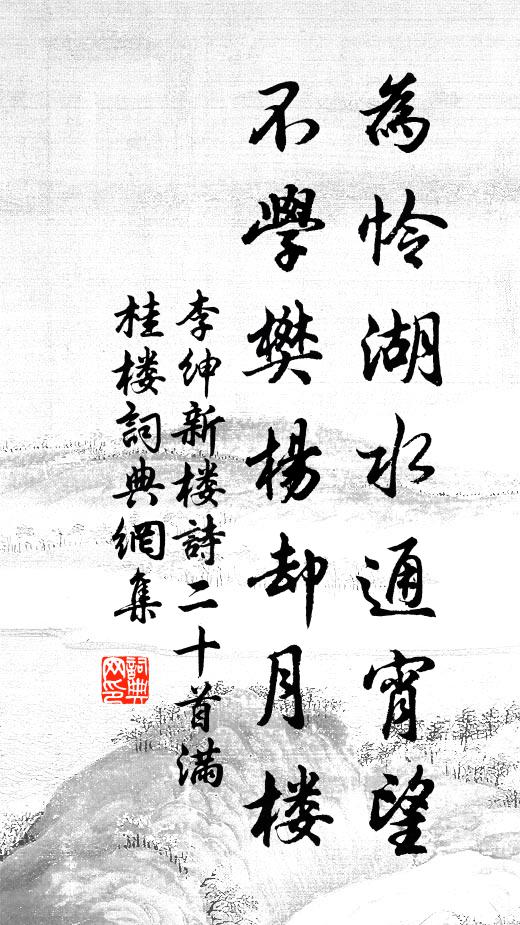 為怜湖水通宵望
不學樊楊却月楼
李紳新楼詩二十首满
桂楼詞典網集
詞典网印